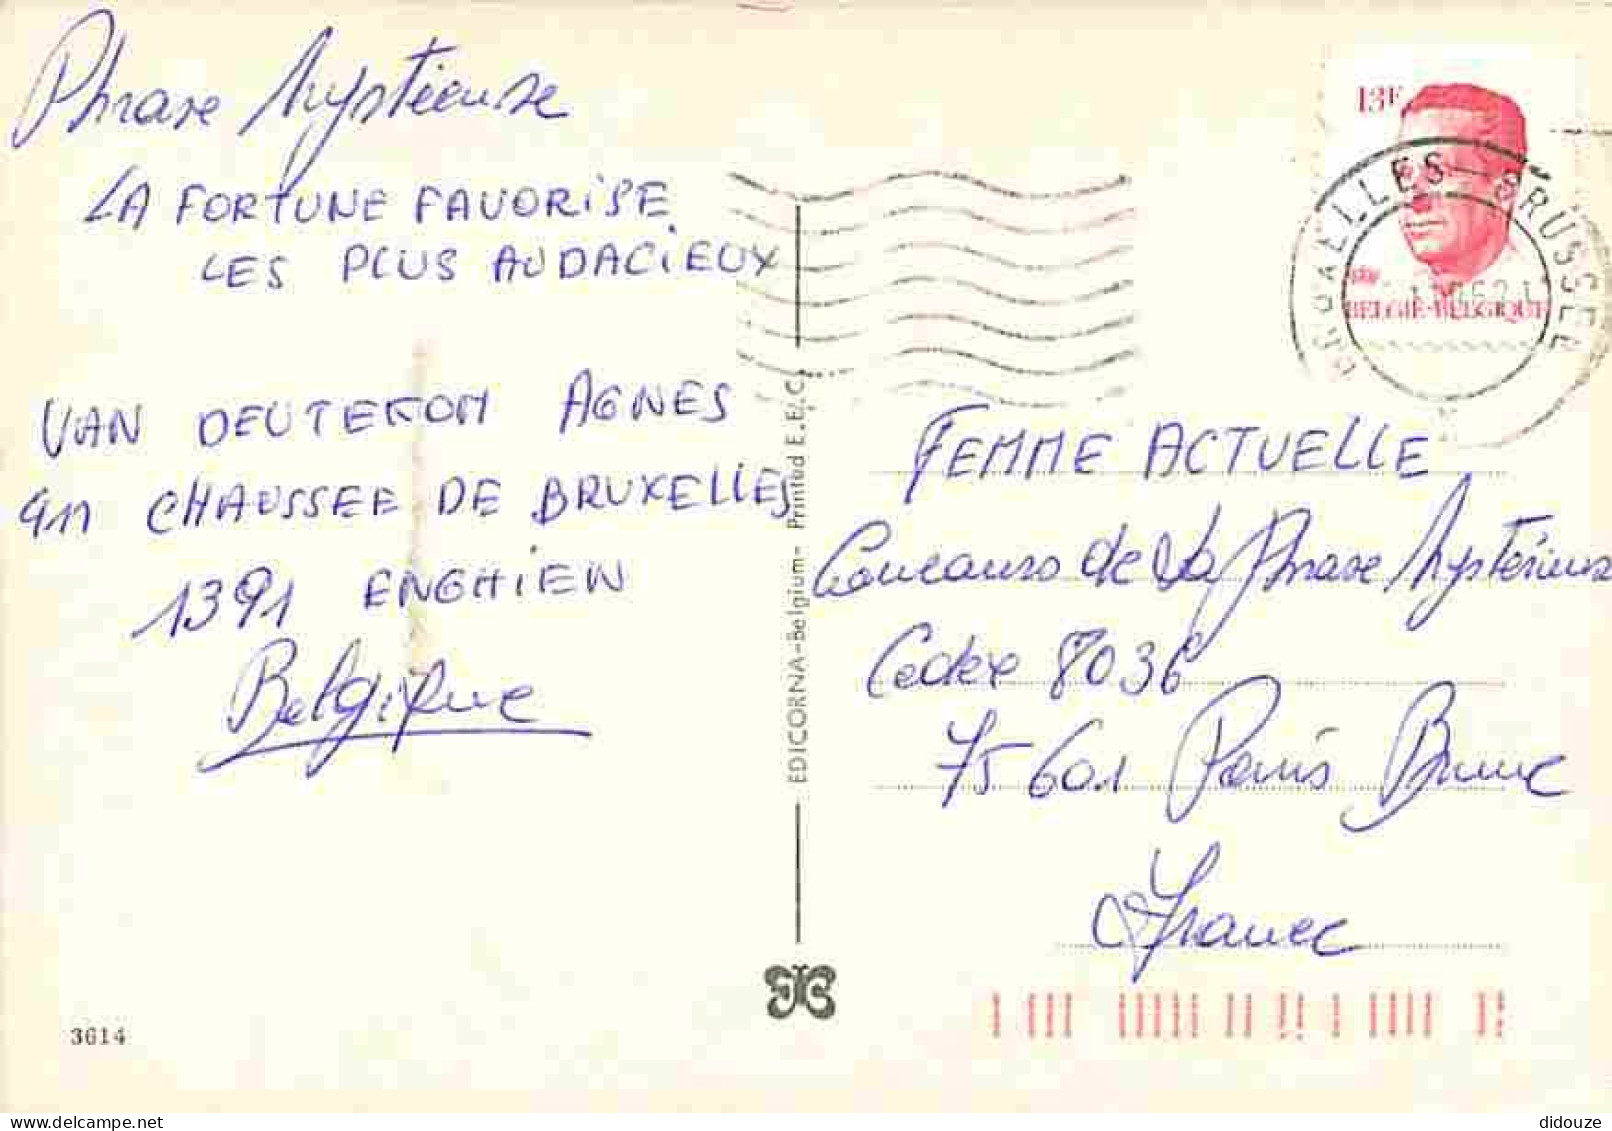 Phrase Mystérieuse
LA FORTUNE FAVORISE
LES PLUS AUDACIEUX
VAN DEUTEKOM AGNES
411 CHAUSSEE DE BRUXELLES
1391 ENGHIEN
Belgique
3614
EDICORNA-Belgium- Printed E.E.C.
13F
BELGIË-BELGIQUE
BRUXELLES - BRUSSEL
FEMME ACTUELLE
Concours de la Phrase Mystérieuse
Cedex 8036
75601 Paris Brune
France
delcampe.net
didouze